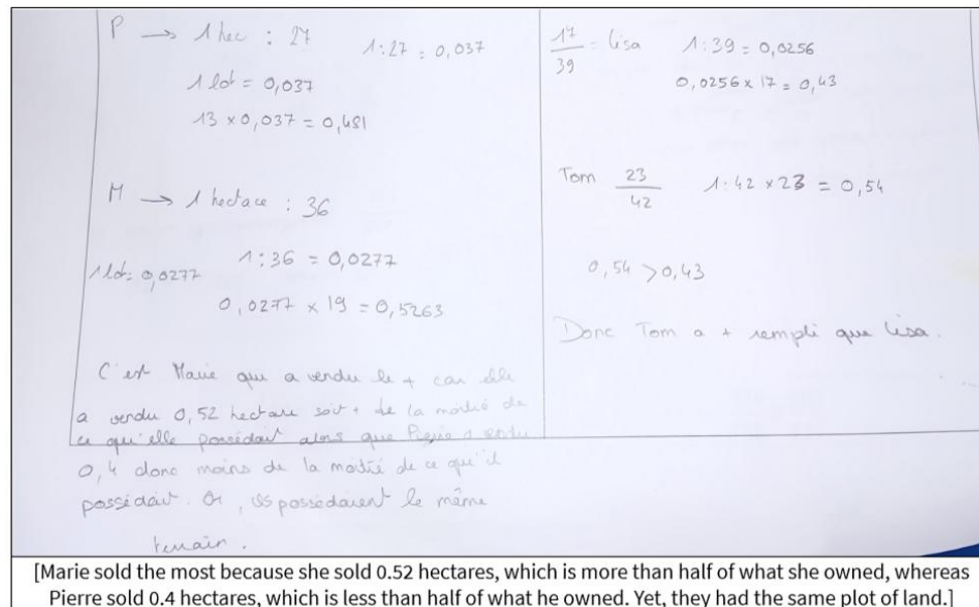 P → 1 hec : 27
1:27 = 0,037
1 lot = 0,037
13 × 0,037 = 0,481
M → 1 hectace : 36
1:36 = 0,0277
1 lot = 0,0277
0,0277 × 19 = 0,5263
C'est Marie qui a vendu le + car elle
a vendu 0,52 hectare soit + de la moitié de
ce qu'elle possédait alors que Pierre a vendu
0,4 donc moins de la moitié de ce qu'il
possédait. Or, ils possédaient le même
terrain.
17/39 = lisa
1:39 = 0,0256
0,0256 × 17 = 0,43
Tom 23/42
1:42 × 23 = 0,54
0,54 > 0,43
Donc Tom a + rempli que lisa.
[Marie sold the most because she sold 0.52 hectares, which is more than half of what she owned, whereas
Pierre sold 0.4 hectares, which is less than half of what he owned. Yet, they had the same plot of land.]